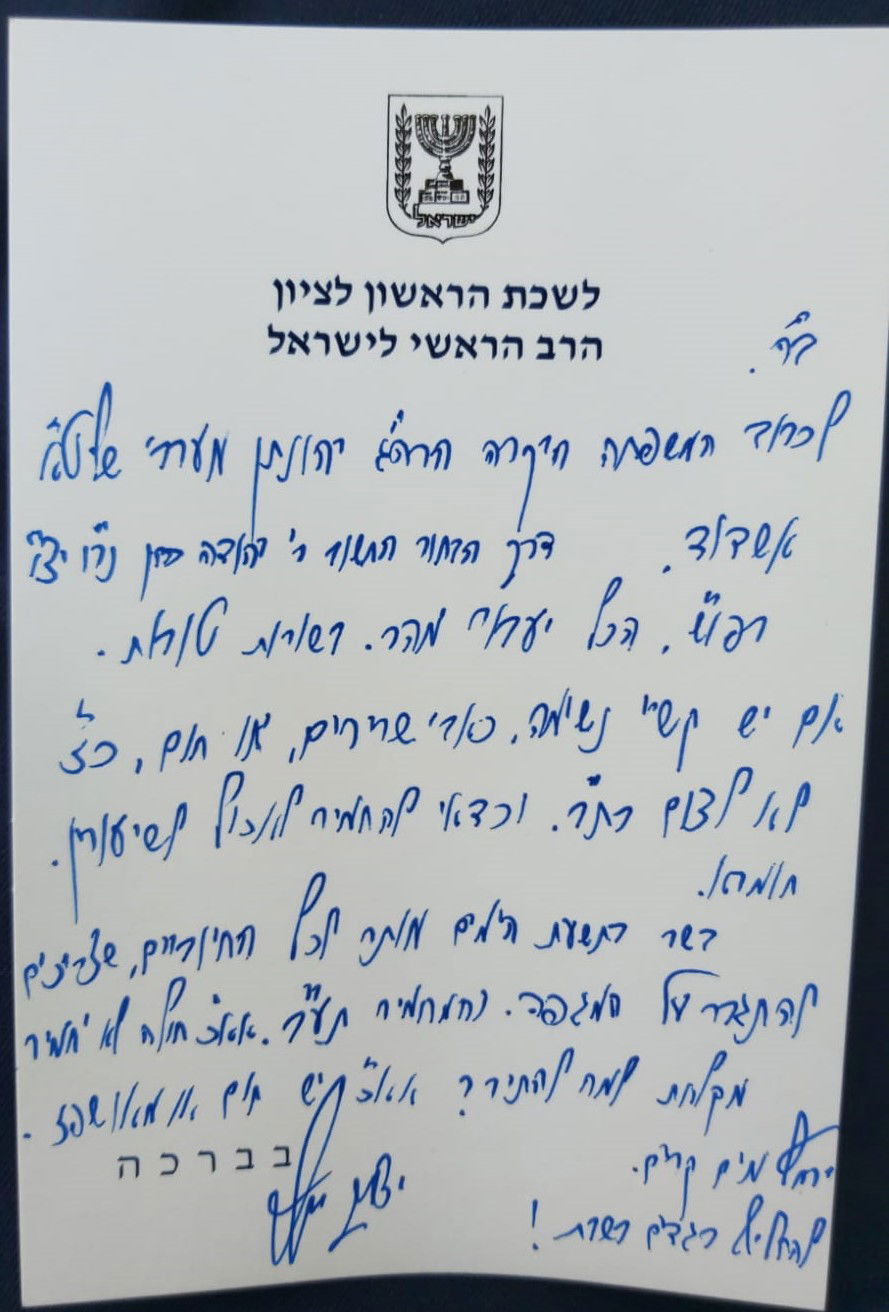 ישראל
לשכת הראשון לציון
הרב הראשי לישראל
ב"ה.
לכבוד המשפחה היקרה הרה"ג יהונתן מערבי שליט"א
אשדוד. דרך הבחור החשוב ר' יהודה כהן נר"ו יצ"ו
רפו"ש, הכל יעבור מהר. בשורות טובות.
אם יש קשיי נשימה, כאבי שרירים, או חום, כ"ז
לא לצום בת"ב. וכדאי להחמיר לאכול לשיעורין.
חומרא.
בשר בתשעת הימים מותר לכל החיוביים, שצריכים
להתגבר על המגפה. והמחמיר תע"ב. אא"כ חולה לא יחמיר
מקלחת למה להתיר? אא"כ יש חום או מאושפז.
ירחץ מים קרים.
להחליף בגדים בשבת!
בברכה
יצחק יוסף